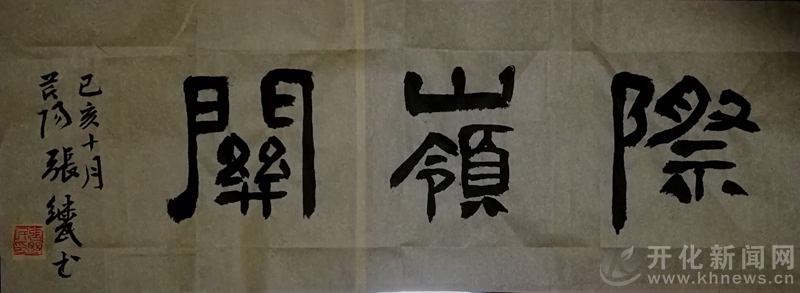 際嶺關
己亥十月
張
书
开化新闻网
www.khnews.cn